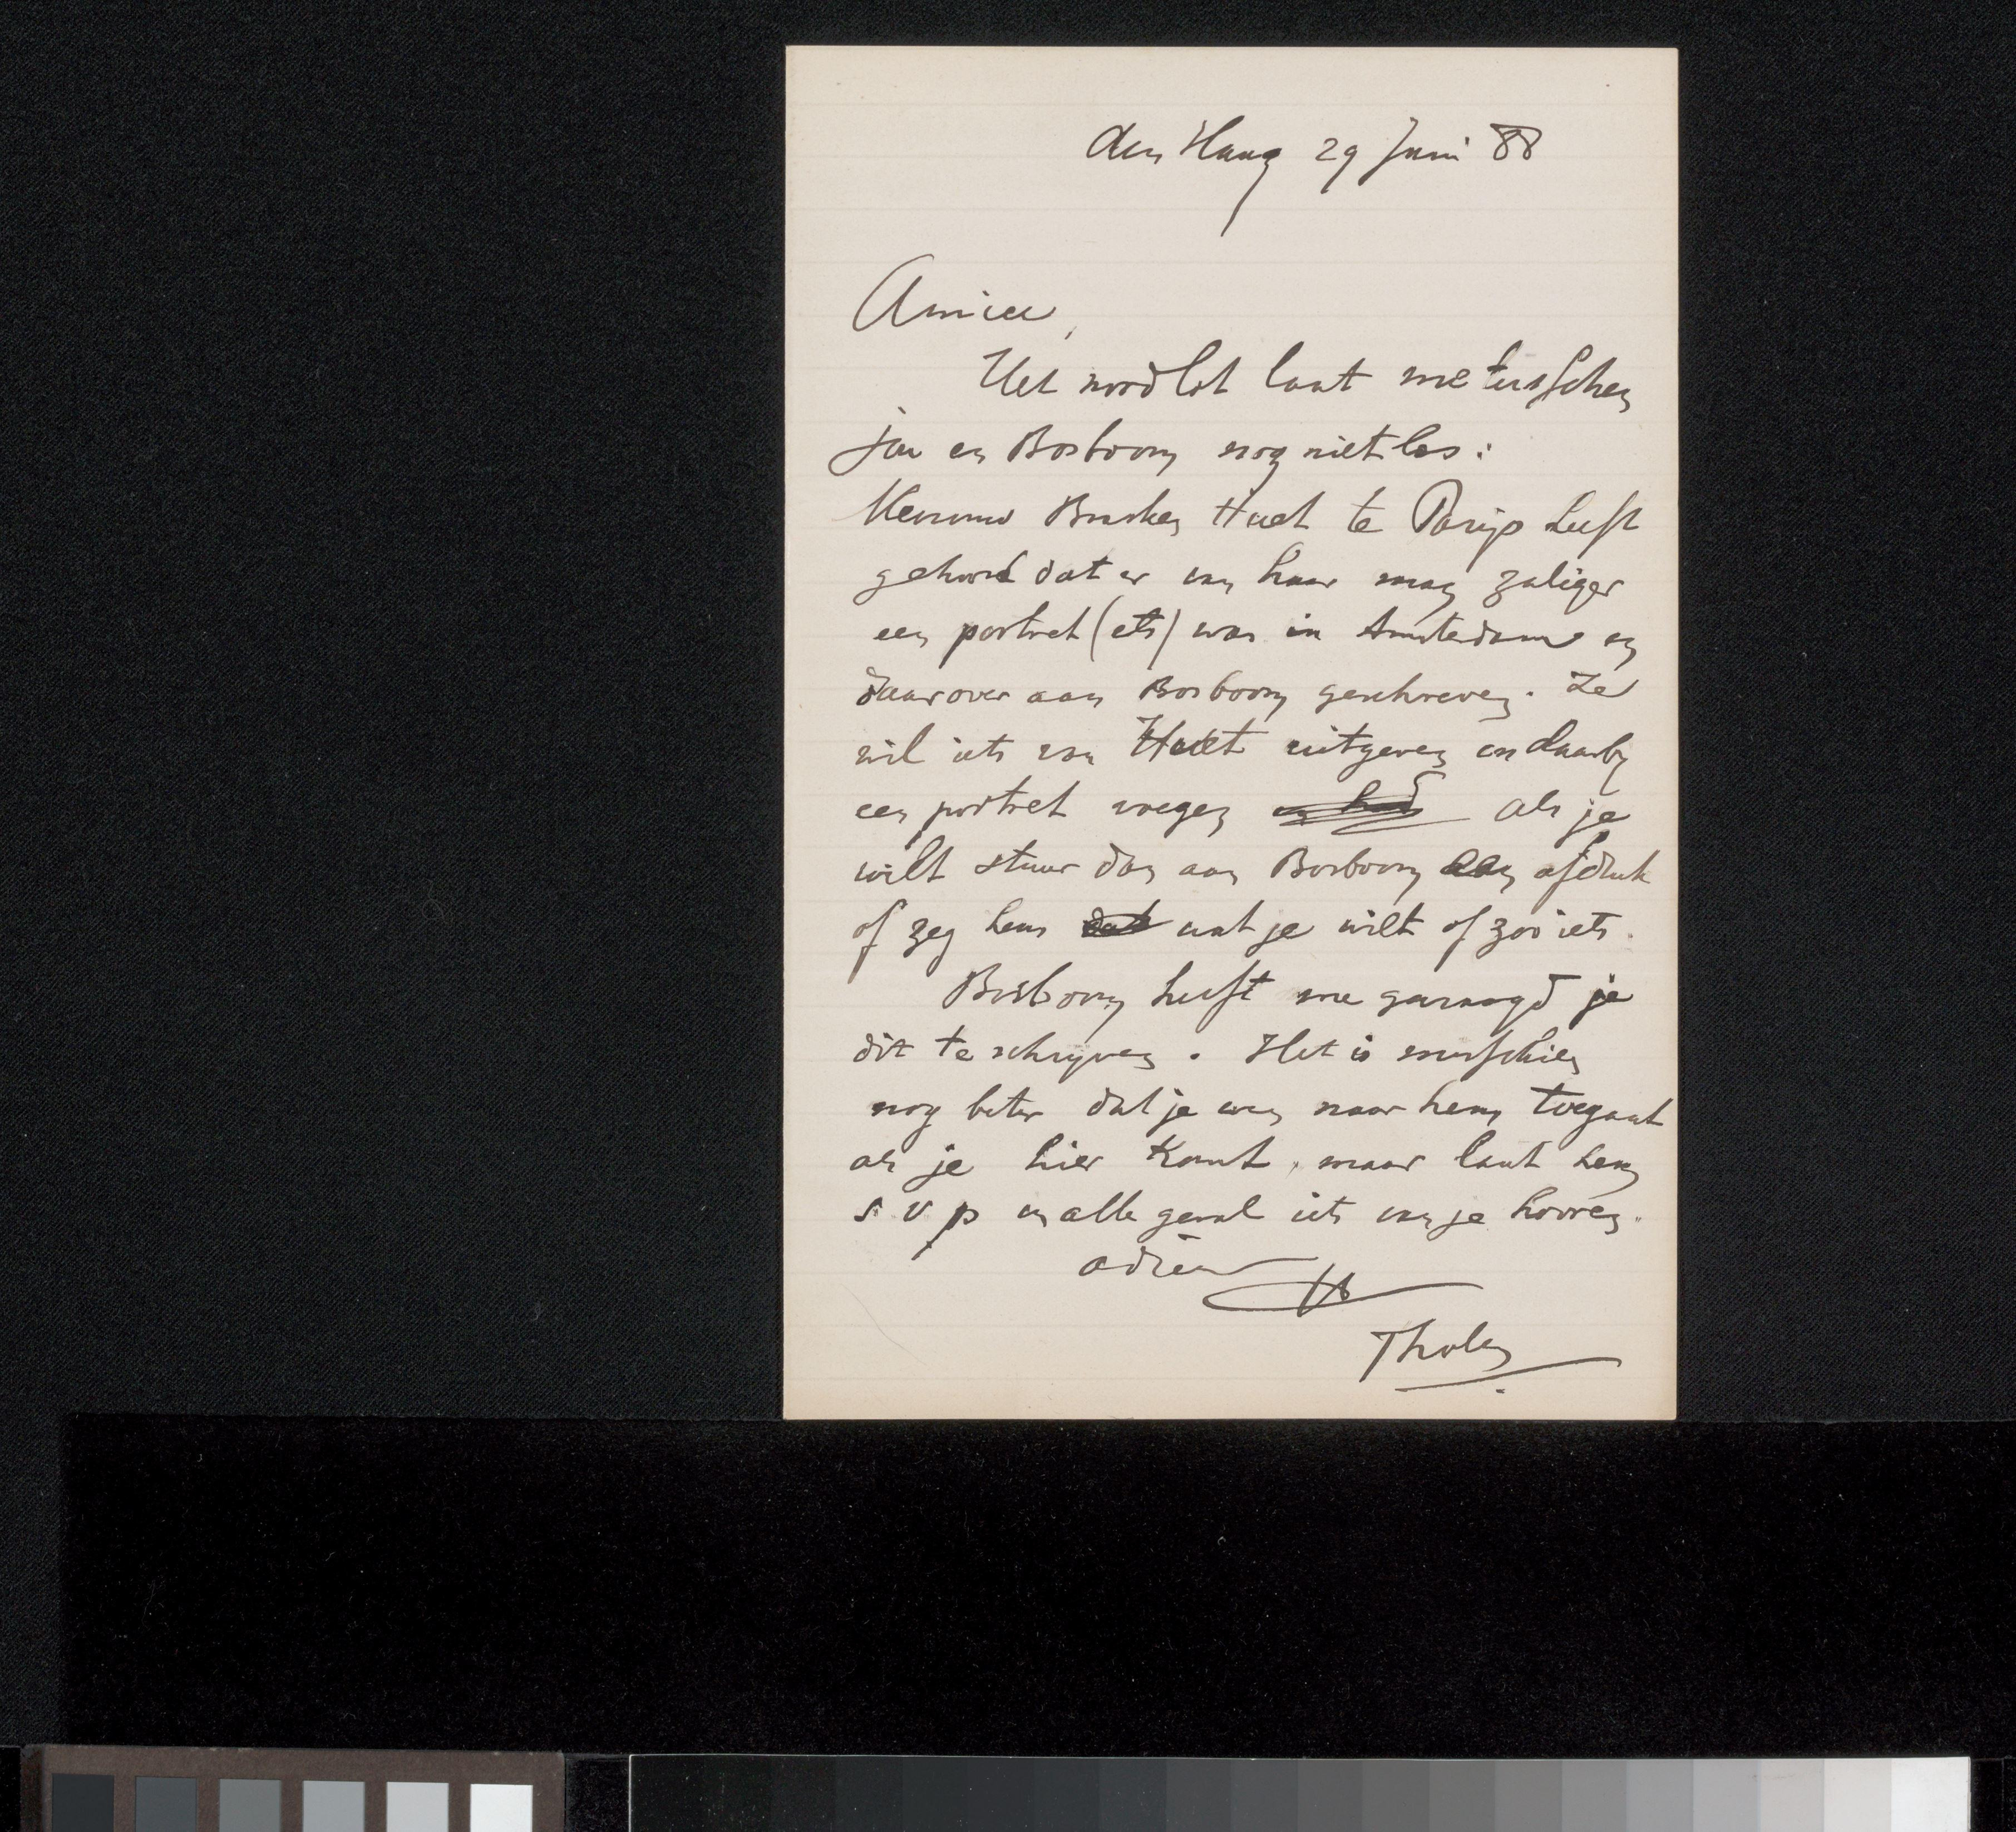 den Haag 29 Juni 88
Amice,
Het noodlot laat me tusschen
jou en Bosboom nog niet los:
Mevrouw Busken Huet te Parijs heeft
gehoord dat er van haar man zaliger
een portret (ets) was in Amsterdam en
daarover aan Bosboom geschreven. Ze
wil iets van Huet uitgeven en daarbij
een portret voegen en had als je
wilt stuur dan aan Bosboom een afdruk
of zeg hem dat wat je wilt of zoo iets.
Bosboom heeft me gevraagd je
dit te schrijven. Het is misschien
nog beter dat je even naar hem toegaat
als je hier komt, maar laat hem
s v p in alle geval iets van je hooren.
adieu
tt
Tholen